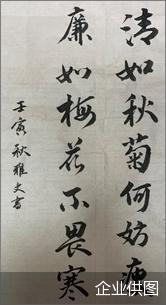 清如秋菊何妨瘦
廉如梅花不畏寒
壬寅秋雅文書
企业供图